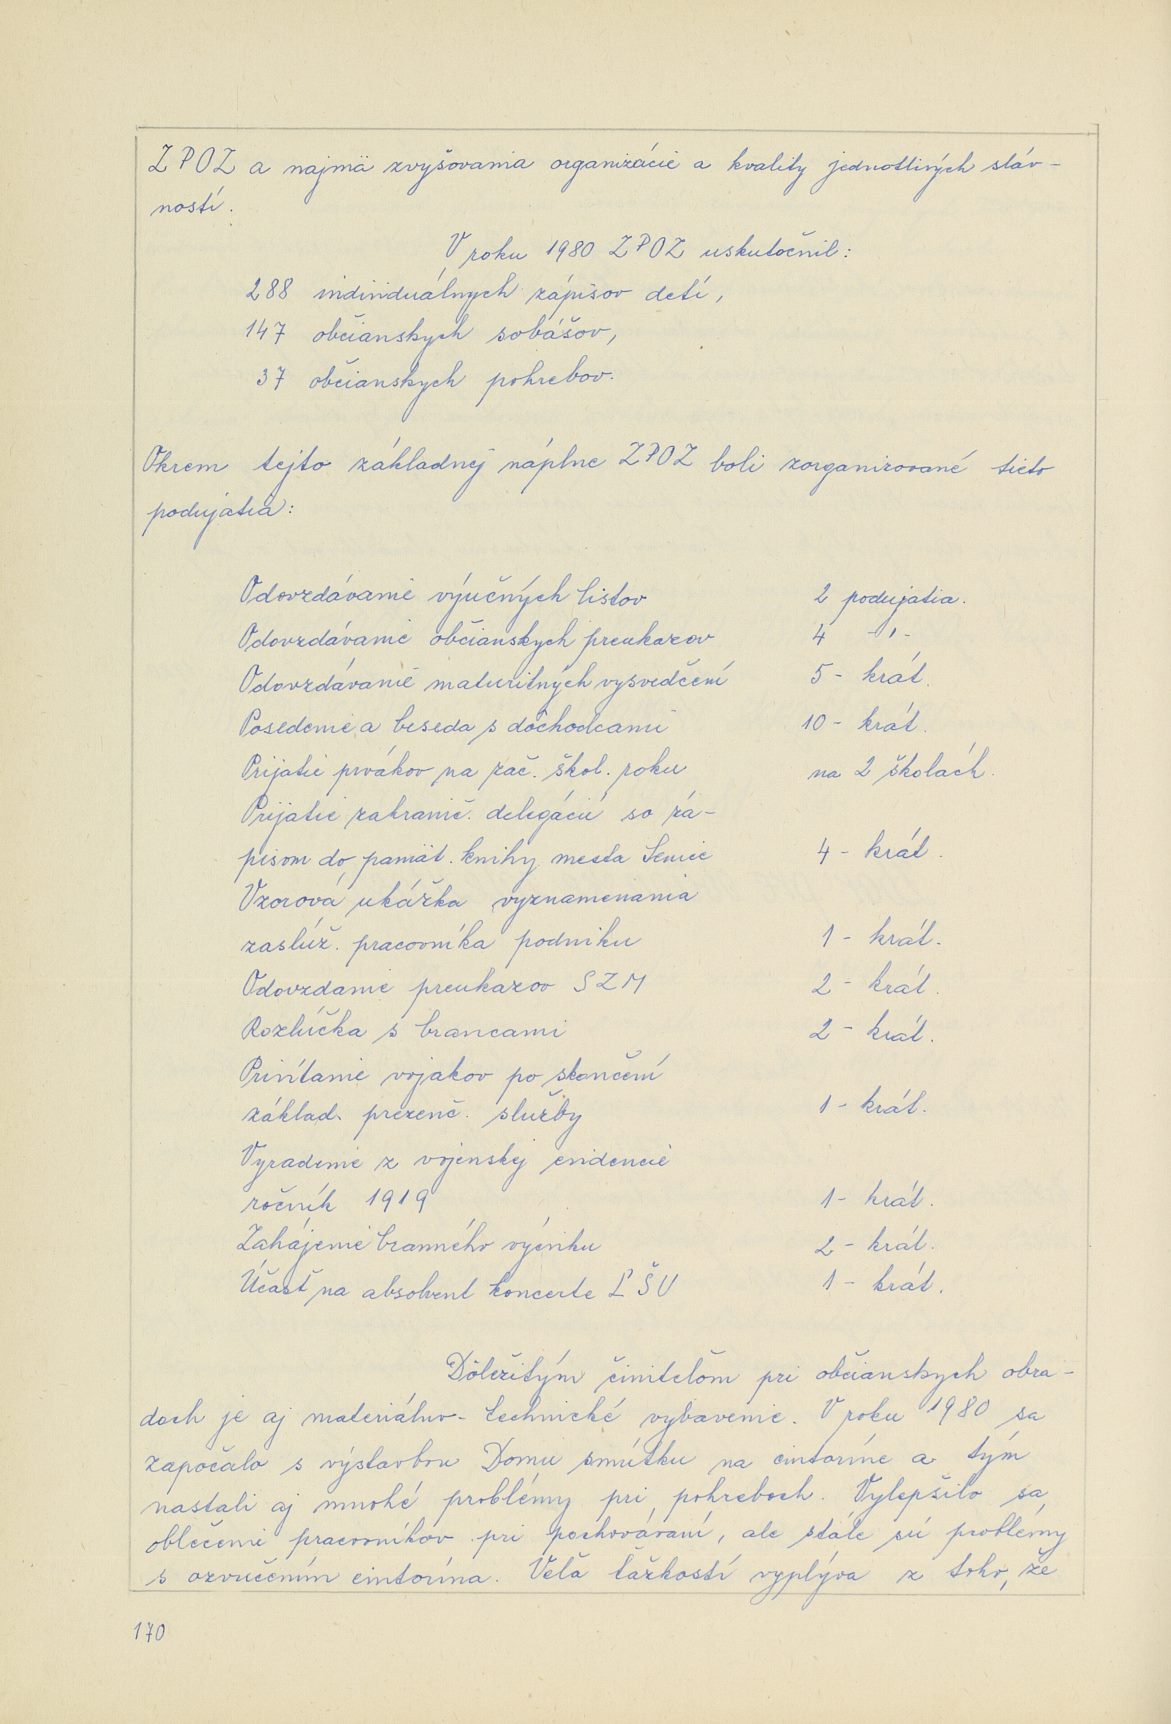 ZPOZ a najmä zvyšovania organizácie a kvality jednotlivých sláv-
ností.
V roku 1980 ZPOZ uskutočnil:
288 individuálnych zápisov detí,
147 občianskych sobášov,
37 občianskych pohrebov.
Okrem tejto základnej náplne ZPOZ boli zorganizované tieto
podujatia:
Odovzdávanie výučných listov 2 podujatia.
Odovzdávanie občianskych preukazov 4 -"-
Odovzdávanie maturitných vysvedčení 5 - krát.
Posedenie a beseda s dôchodcami 10 - krát.
Prijatie prvákov na zač. škol. roku na 2 školách.
Prijatie zahranič. delegácií so zá-
pisom do pamät. knihy mesta Senice 4 - krát.
Vzorová ukážka vyznamenania
zaslúž. pracovníka podniku 1 - krát.
Odovzdanie preukazov SZM 2 - krát.
Rozlúčka s brancami 2 - krát.
Privítanie vojakov po skončení
základ. prezenč. služby 1 - krát.
Vyradenie z vojenskej evidencie
ročník 1919 1 - krát.
Zahájenie branného výcviku 2 - krát.
Účasť na absolvent koncerte ĽŠU 1 - krát.
Dôležitým činiteľom pri občianskych obra-
doch je aj materiálno-technické vybavenie. V roku 1980 sa
započalo s výstavbou Domu smútku na cintoríne a tým
nastali aj mnohé problémy pri pohreboch. Vylepšilo sa
oblečenie pracovníkov pri pochovávaní, ale stále sú problémy
s ozvučením cintorína. Veľa ťažkostí vyplýva z toho, že
170